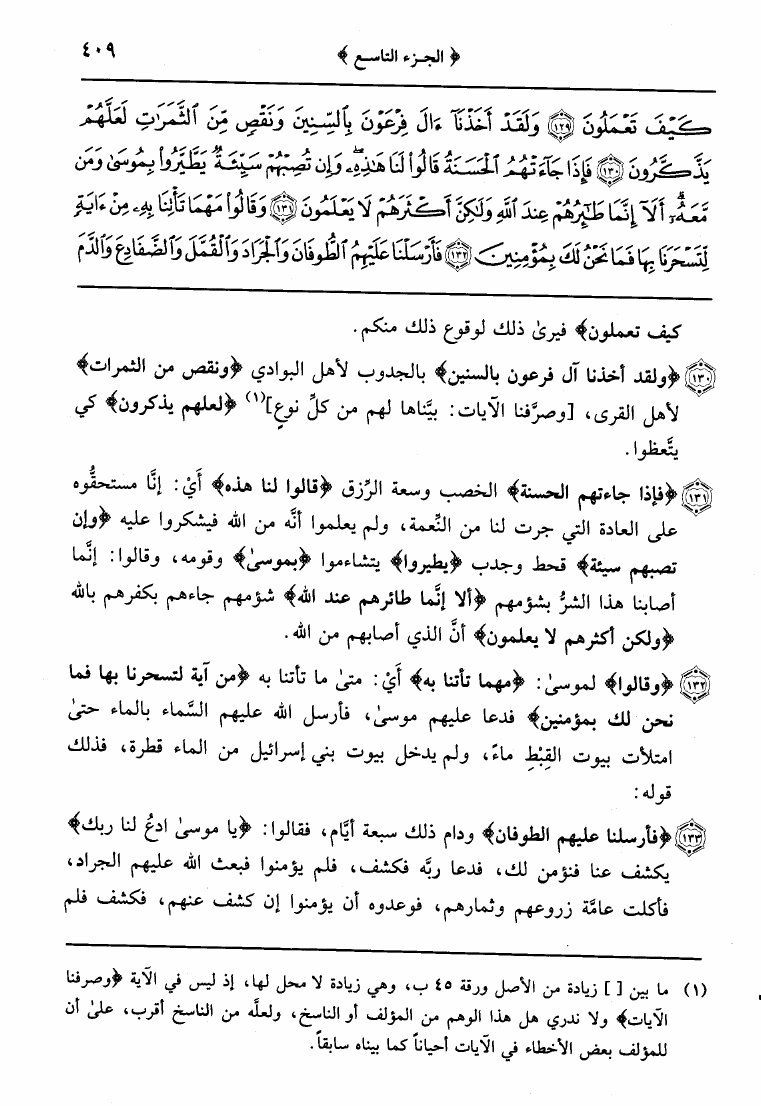 ﴿ الجزء التاسع ﴾ ٤٠٩
كَيْفَ تَعْمَلُونَ ١٢٩ وَلَقَدْ أَخَذْنَآ ءَالَ فِرْعَوْنَ بِٱلسِّنِينَ وَنَقْصٍ مِّنَ ٱلثَّمَرَٰتِ لَعَلَّهُمْ
يَذَّكَّرُونَ ١٣٠ فَإِذَا جَآءَتْهُمُ ٱلْحَسَنَةُ قَالُوا۟ لَنَا هَٰذِهِۦ وَإِن تُصِبْهُمْ سَيِّئَةٌ يَطَّيَّرُوا۟ بِمُوسَىٰ وَمَن
مَّعَهُۥٓ أَلَآ إِنَّمَا طَٰٓئِرُهُمْ عِندَ ٱللَّهِ وَلَٰكِنَّ أَكْثَرَهُمْ لَا يَعْلَمُونَ ١٣١ وَقَالُوا۟ مَهْمَا تَأْتِنَا بِهِۦ مِنْ ءَايَةٍ
لِّتَسْحَرَنَا بِهَا فَمَا نَحْنُ لَكَ بِمُؤْمِنِينَ ١٣٢ فَأَرْسَلْنَا عَلَيْهِمُ ٱلطُّوفَانَ وَٱلْجَرَادَ وَٱلْقُمَّلَ وَٱلضَّفَادِعَ وَٱلدَّمَ
كيف تعملون﴾ فيرىٰ ذلك لوقوع ذلك منكم.
١٣٠ ﴿ولقد أخذنا آل فرعون بالسنين﴾ بالجدوب لأهل البوادي ﴿ونقص من الثمرات﴾
لأهل القرى، [وصرَّفنا الآيات: بيَّناها لهم من كلِّ نوعٍ](١) ﴿لعلهم يذكرون﴾ كي
يتَّعظوا.
١٣١ ﴿فإذا جاءتهم الحسنة﴾ الخصب وسعة الرِّزق ﴿قالوا لنا هذه﴾ أَيْ: إنَّا مستحقُّوه
على العادة التي جرت لنا من النِّعمة، ولم يعلموا أنَّه من الله فيشكروا عليه ﴿وإن
تصبهم سيئة﴾ قحط وجدب ﴿يطيروا﴾ يتشاءموا ﴿بموسىٰ﴾ وقومه، وقالوا: إنَّما
أصابنا هذا الشرُّ بشؤمهم ﴿ألا إنَّما طائرهم عند الله﴾ شؤمهم جاءهم بكفرهم بالله
﴿ولكن أكثرهم لا يعلمون﴾ أنَّ الذي أصابهم من الله.
١٣٢ ﴿وقالوا﴾ لموسىٰ: ﴿مهما تأتنا به﴾ أَيْ: متىٰ ما تأتنا به ﴿من آية لتسحرنا بها فما
نحن لك بمؤمنين﴾ فدعا عليهم موسىٰ، فأرسل الله عليهم السَّماء بالماء حتىٰ
امتلأت بيوت القِبْطِ ماءً، ولم يدخل بيوت بني إسرائيل من الماء قطرة، فذلك
قوله:
١٣٣ ﴿فأرسلنا عليهم الطوفان﴾ ودام ذلك سبعة أيَّام، فقالوا: ﴿يا موسىٰ ادعُ لنا ربك﴾
يكشف عنا فنؤمن لك، فدعا ربَّه فكشف، فلم يؤمنوا فبعث الله عليهم الجراد،
فأكلت عامَّة زروعهم وثمارهم، فوعدوه أن يؤمنوا إن كشف عنهم، فكشف فلم
(١) ما بين [ ] زيادة من الأصل ورقة ٤٥ ب، وهي زيادة لا محل لها، إذ ليس في الآية ﴿وصرفنا
الآيات﴾ ولا ندري هل هذا الوهم من المؤلف أو الناسخ، ولعلَّه من الناسخ أقرب، علىٰ أن
للمؤلف بعض الأخطاء في الآيات أحياناً كما بيناه سابقاً.